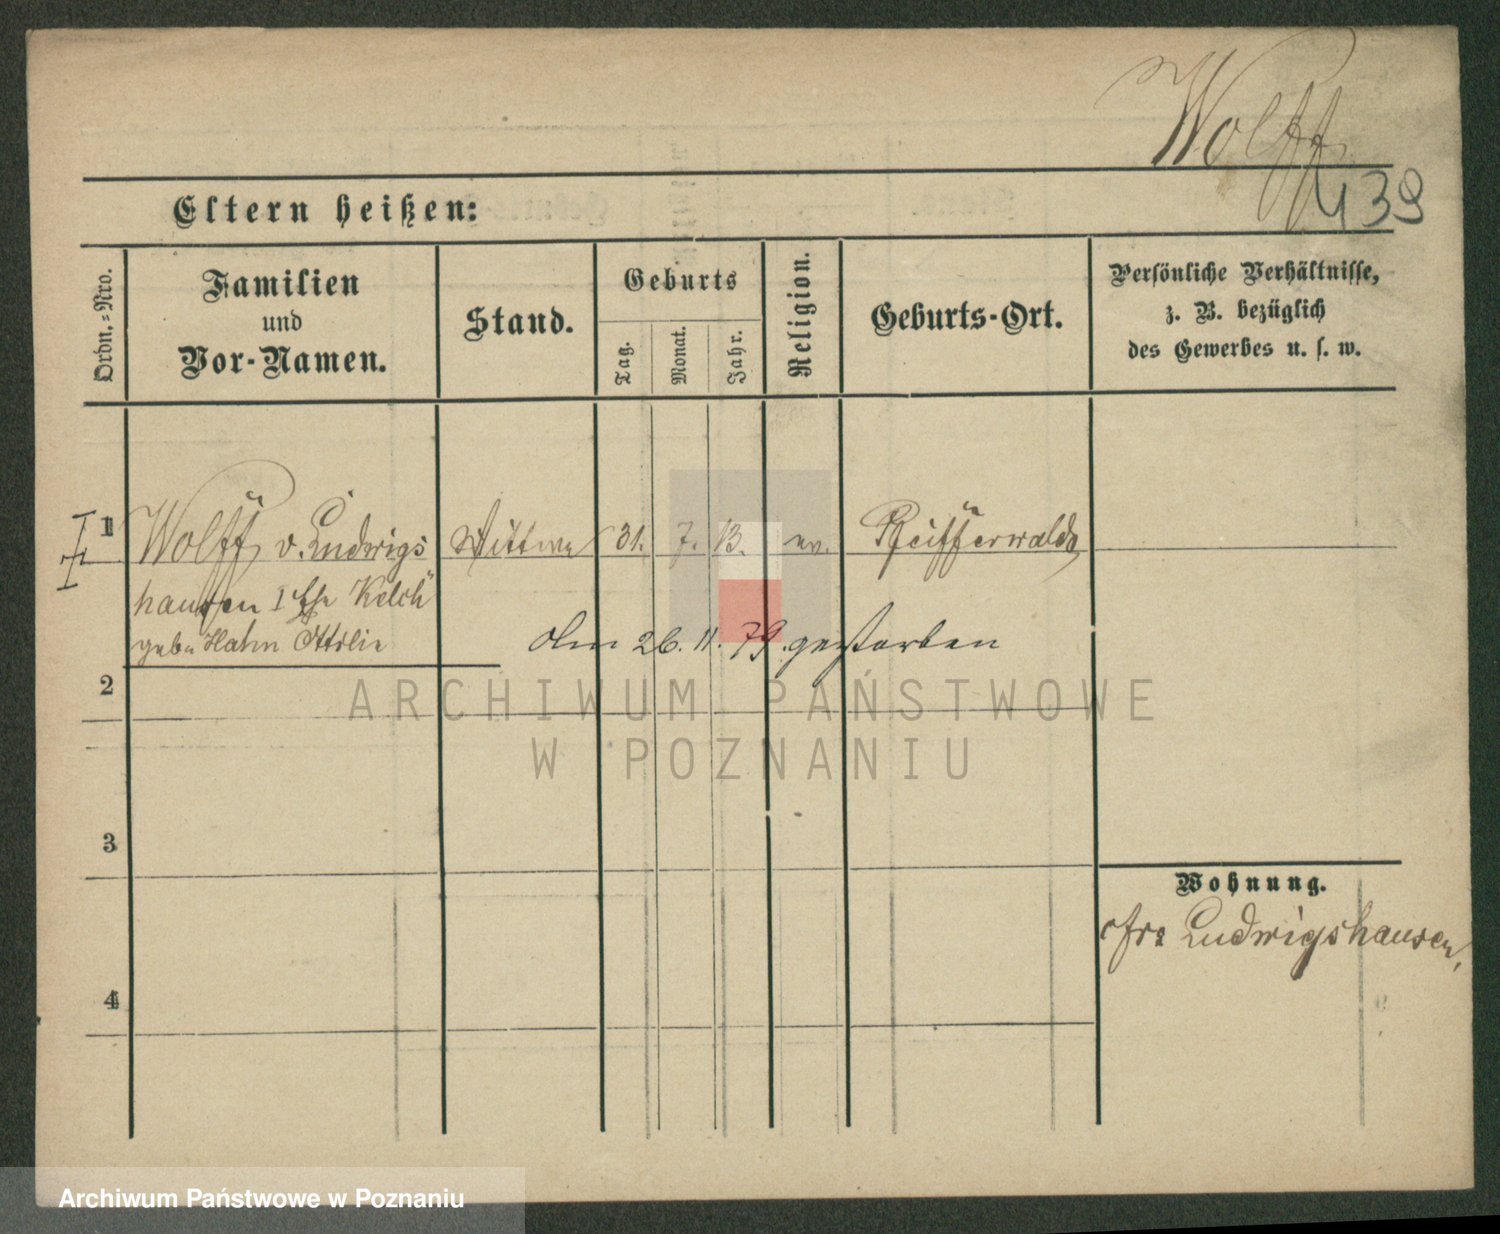 Wolff
439
Eltern heißen:
Ordn.-Nro.
Familien
und
Vor-Namen.
Stand.
Geburts
Tag.
Monat.
Jahr.
Religion.
Geburts-Ort.
Persönliche Verhältnisse,
z. B. bezüglich
des Gewerbes u. s. w.
1 Wolff v. Ludwigs Wittwe 31. 7. 13. ev. Pfeifferwalde
hausen 1 Ehe Kelch
geb. Hahn Ottilie
Am 26. 11. 79. gestorben
2
3
4
Wohnung.
Ludwigshausen,
ARCHIWUM PAŃSTWOWE
W POZNANIU
Archiwum Państwowe w Poznaniu